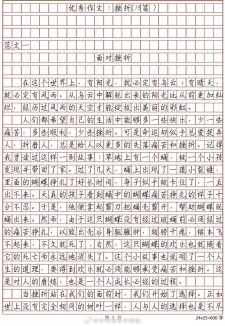 优秀作文：挫折(15篇)
范文一
面对挫折
在这个世界上，有阳光，就必定有乌云；有晴天，
就必定有风雨。从乌云中解脱出来的阳光比从前更加灿
烂，经历过风雨的天空才能绽放出美丽的彩虹。
人们都希望自己的生活中能够多一些快乐，少一些
痛苦；多些顺利，少一些挫折，可是命运却似乎总爱捉弄
人、折磨人，总是给人以更多的失落、痛苦和挫折。记得
我曾读过这样一则故事：草地上有一个蛹，被一个小孩
发现并带回了家。过了几天，蛹上出现了一道小裂缝，
里面的蝴蝶挣扎了好长时间，身子似乎被卡住了，一直
出不来。天真的孩子看到蛹中的蝴蝶痛苦挣扎的样子十
分不忍。于是，他便拿起剪刀把蛹壳剪开，帮助蝴蝶脱蛹
出来。然而，由于这只蝴蝶没有经过破蛹前必须经过
的痛苦挣扎，以致出壳后身躯臃肿，翅膀干瘪，根本飞
不起来，不久就死了。自然，这只蝴蝶的欢乐也就随着
它的死亡而永远地消失了。这个小故事也说明了一个人
生的道理，要得到欢乐就必须能够承受痛苦和挫折。这
是对人的磨炼，也是一个人成长必经的过程。
当挫折站在我们的面前时，我们开始了选择。正如世
上没有完全相同的树叶一样，人与人的选择也是不尽
24×25=600 字